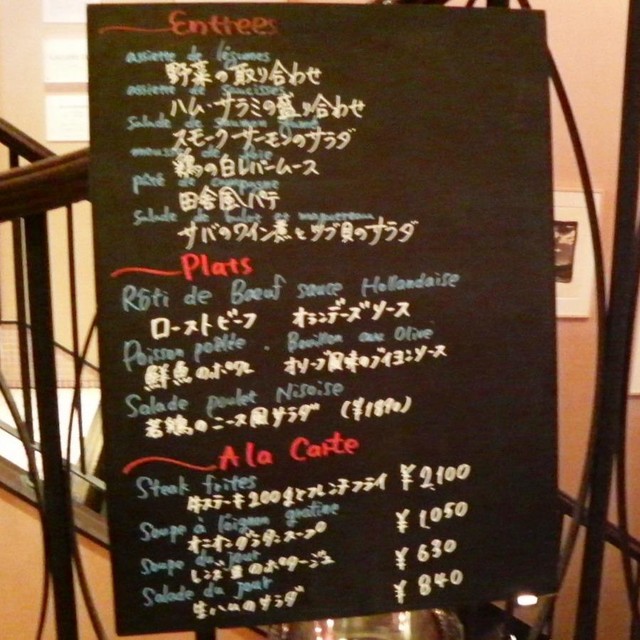 Entrees
assiette de légumes
野菜の取り合わせ
assiette de saucisses
ハム・サラミの盛り合わせ
Salade de
スモークサーモンのサラダ
鶏の白レバームース
pâté de campagne
田舎風パテ
Salade de bulot et maquereau
サバのワイン蒸とツブ貝のサラダ
Plats
Rôti de Bœuf sauce Hollandaise
ローストビーフ オランデーズソース
Poisson poêlée . Bouillon aux Olive
鮮魚のポワレ オリーブ風味のブイヨンソース
Salade poulet Nisoise
若鶏のニース風サラダ
A la Carte
Steak frites
牛ステーキ200gとフレンチフライ ¥2100
Soupe à l'oignon gratine
オニオングラタンスープ ¥1050
Soupe du jour
レンズ豆のポタージュ ¥630
Salade du jour
生ハムのサラダ ¥840